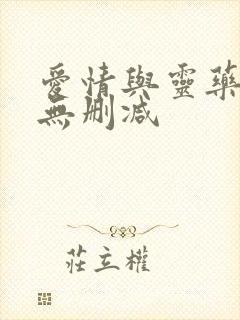 愛情與靈藥
無刪減
莊立權